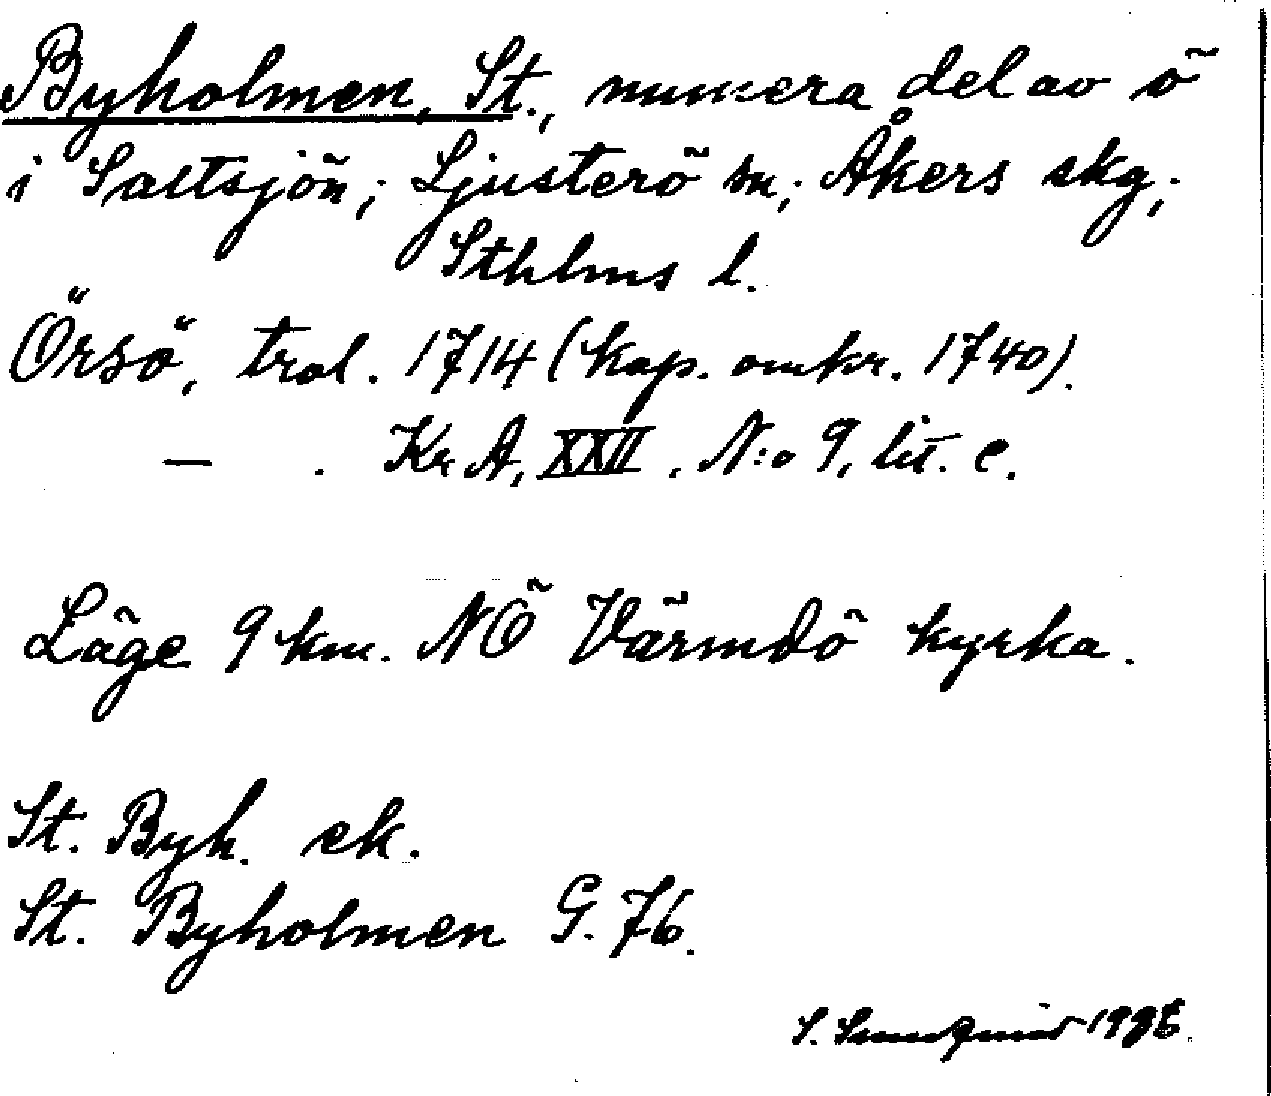 Byholmen, St., numera del av ö
i Saltsjön; Ljusterö sn; Åkers skg;
Sthlms l.
Örsö, trol. 1714 (kap. omkr. 1740).
— . Kr A, XXII, N:o 9, lit. c.
Läge 9 km. NÖ Värmdö kyrka.
St. Byh. ek.
St. Byholmen G. 76.
S.